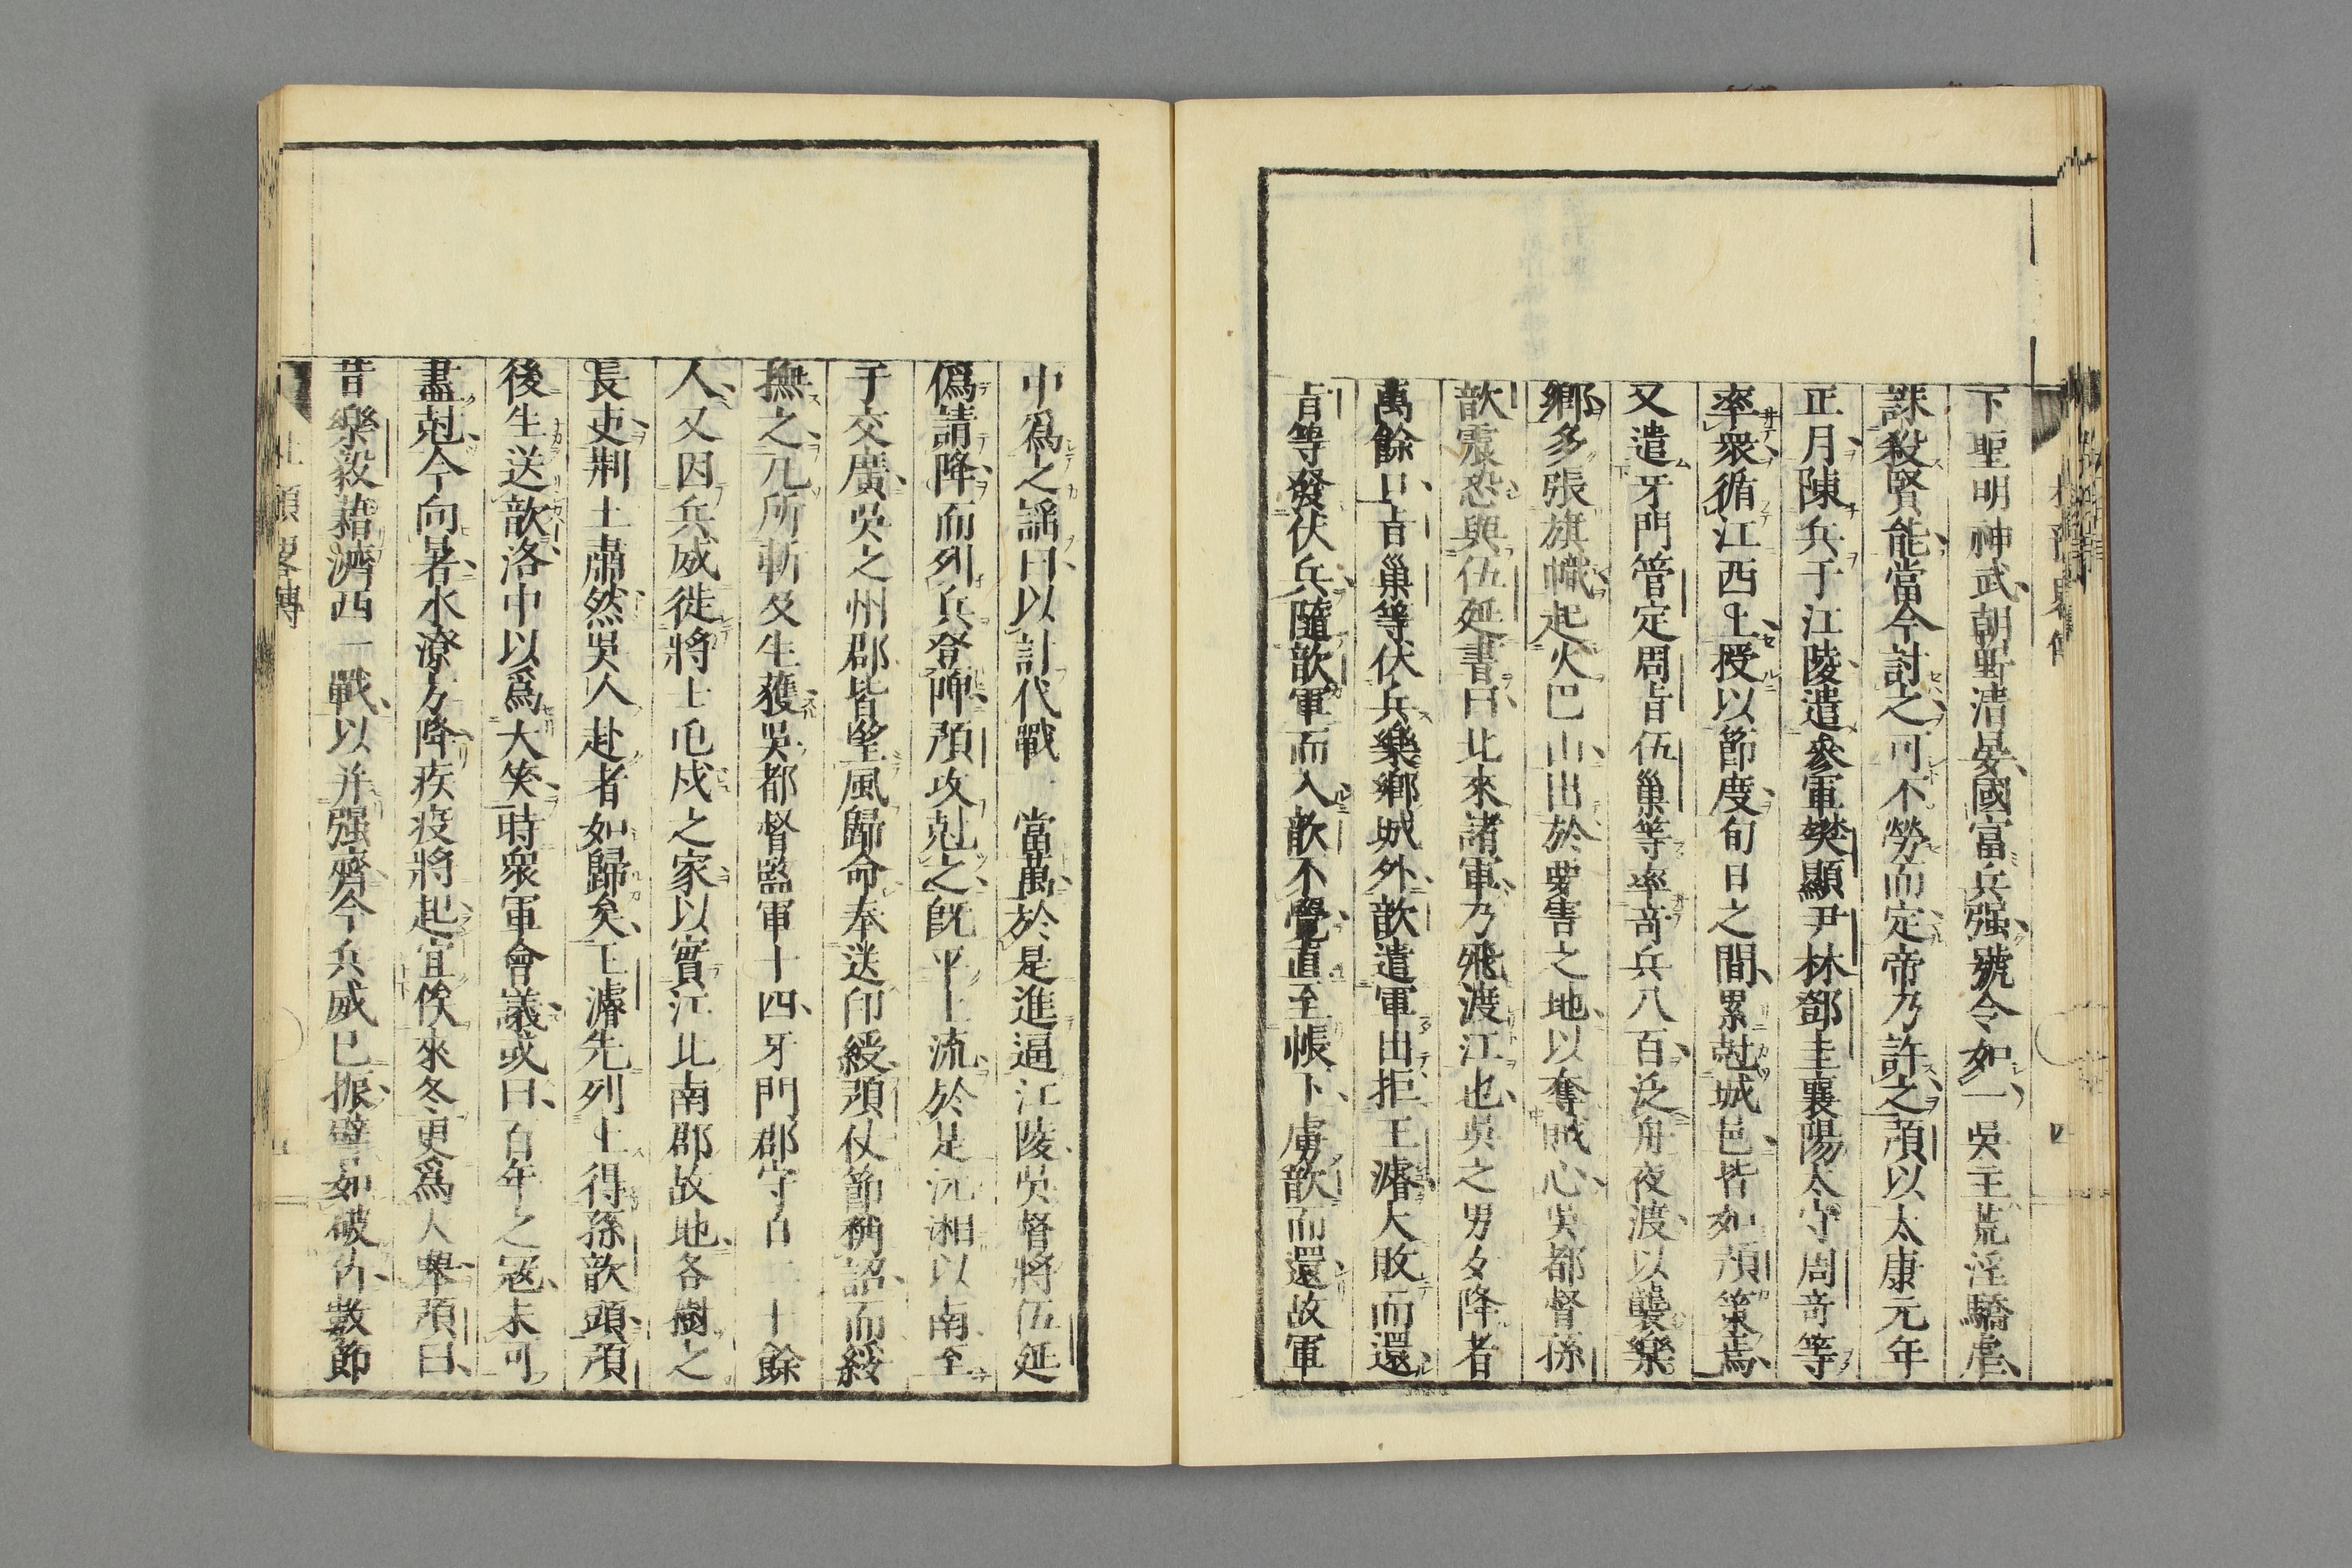 下聖明神武朝野清晏國富兵强號令如一吳主荒淫驕虐
誅殺賢能當今討之可不勞而定帝乃許之預以太康元年
正月陳兵于江陵遣參軍樊顯尹林鄧圭襄陽太守周竒等
率衆循江西上授以節度旬日之間累尅城邑皆如預策焉
又遣牙門管定周旨伍巢等率竒兵八百泛舟夜渡以襲樂
鄉多張旗幟起火巴山出於要害之地以奪賊心吳都督孫
歆震恐與伍延書曰北來諸軍乃飛渡江也吳之男女降者
萬餘口旨巢等伏兵樂鄉城外歆遣軍出拒王濬大敗而還
旨等發伏兵隨歆軍而入歆不覺直至帳下虜歆而還故軍
中爲之謡曰以計代戰一當萬於是進逼江陵吳督將伍延
僞請降而列兵登陴預攻尅之旣平上流於是沅湘以南至
于交廣吳之州郡皆望風歸命奉送印綬預仗節稱詔而綏
撫之凡所斬及生獲吳都督監軍十四牙門郡守百二十餘
人又因兵威徙將士屯戍之家以實江北南郡故地各樹之
長吏荆土肅然吳人赴者如歸矣王濬先列上得孫歆頭預
後生送歆洛中以爲大笑時衆軍會議或曰百年之寇未可
盡尅今向暑水潦方降疾疫將起宜俟來冬更爲大舉預曰
昔樂毅藉濟西一戰以并强齊今兵威已振譬如破竹數節
杜預畧傳